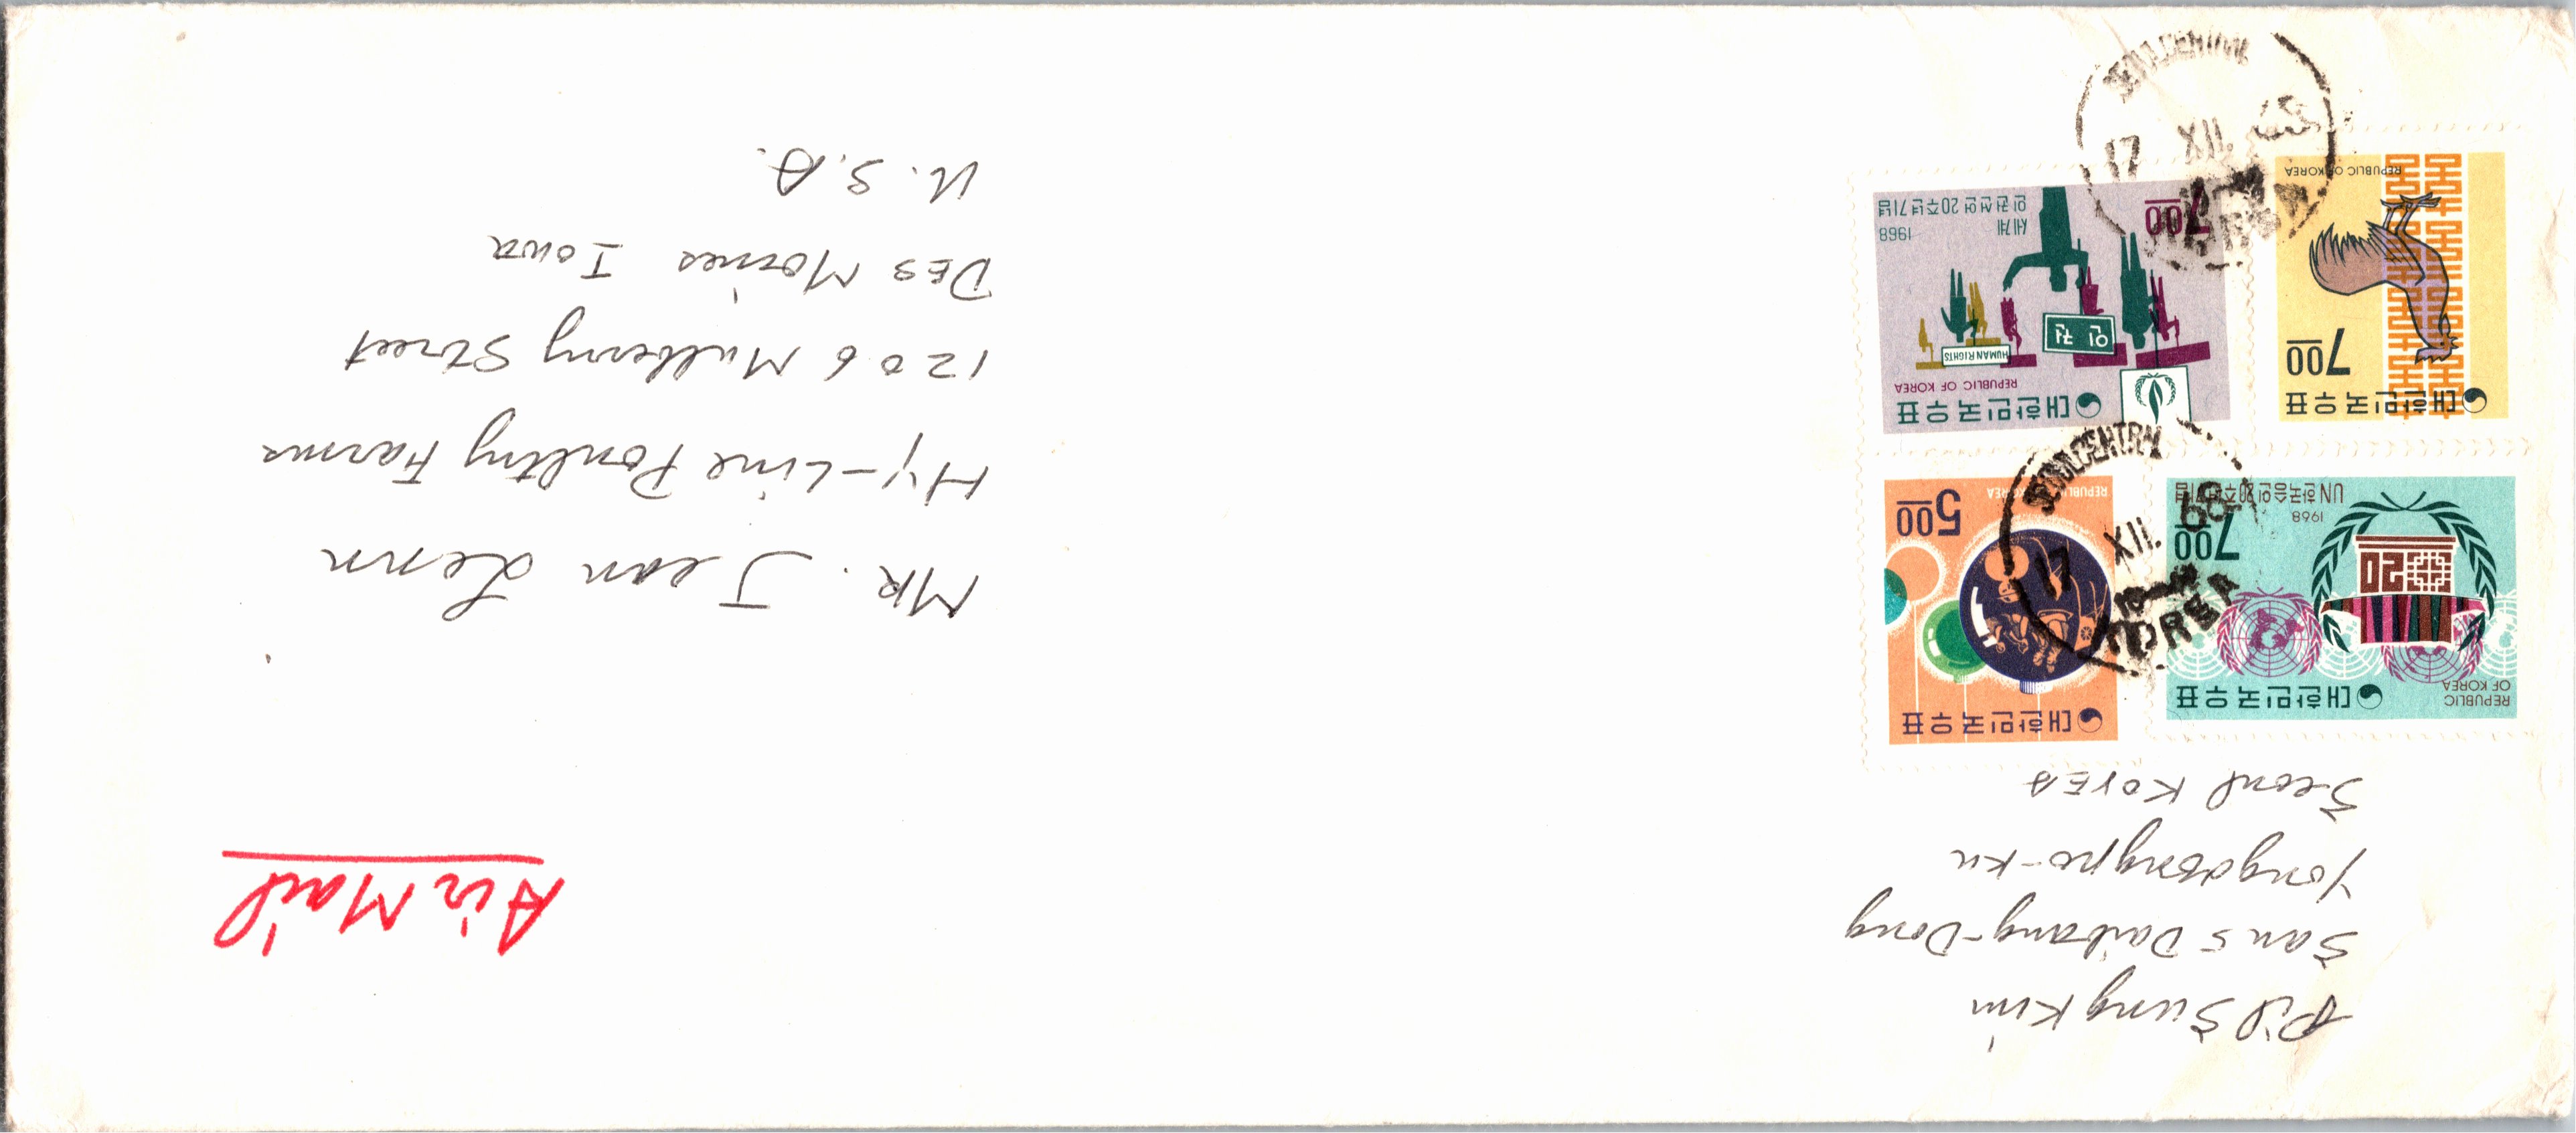 Pil Sung Kim
San 5 Daibang-Dong
Yongdongpo-ku
Seoul KorEA
Air Mail
MR. Jean Lenn
Hy-Line Poultry Farms
1206 Mulberry Street
DES Moines Iowa
U.S.A.
REPUBLIC
OF KOREA
대한민국우표
20
1968
7 00
UN 한국승인 20주년기념
대한민국우표
5 00
REPUBLIC OF KOREA
KOREA
17 XII. 68
SEOUL CENTRAL
대한민국우표
7 00
REPUBLIC OF KOREA
대한민국우표
REPUBLIC OF KOREA
인권
HUMAN RIGHTS
7 00
세계 1968
인권선언 20주년기념
17 XII.
SEOUL CENTRAL